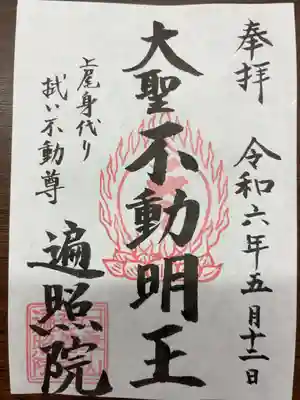 奉拝
令和六年五月十二日
大聖不動明王
上尾身代り
拭い不動尊
遍照院